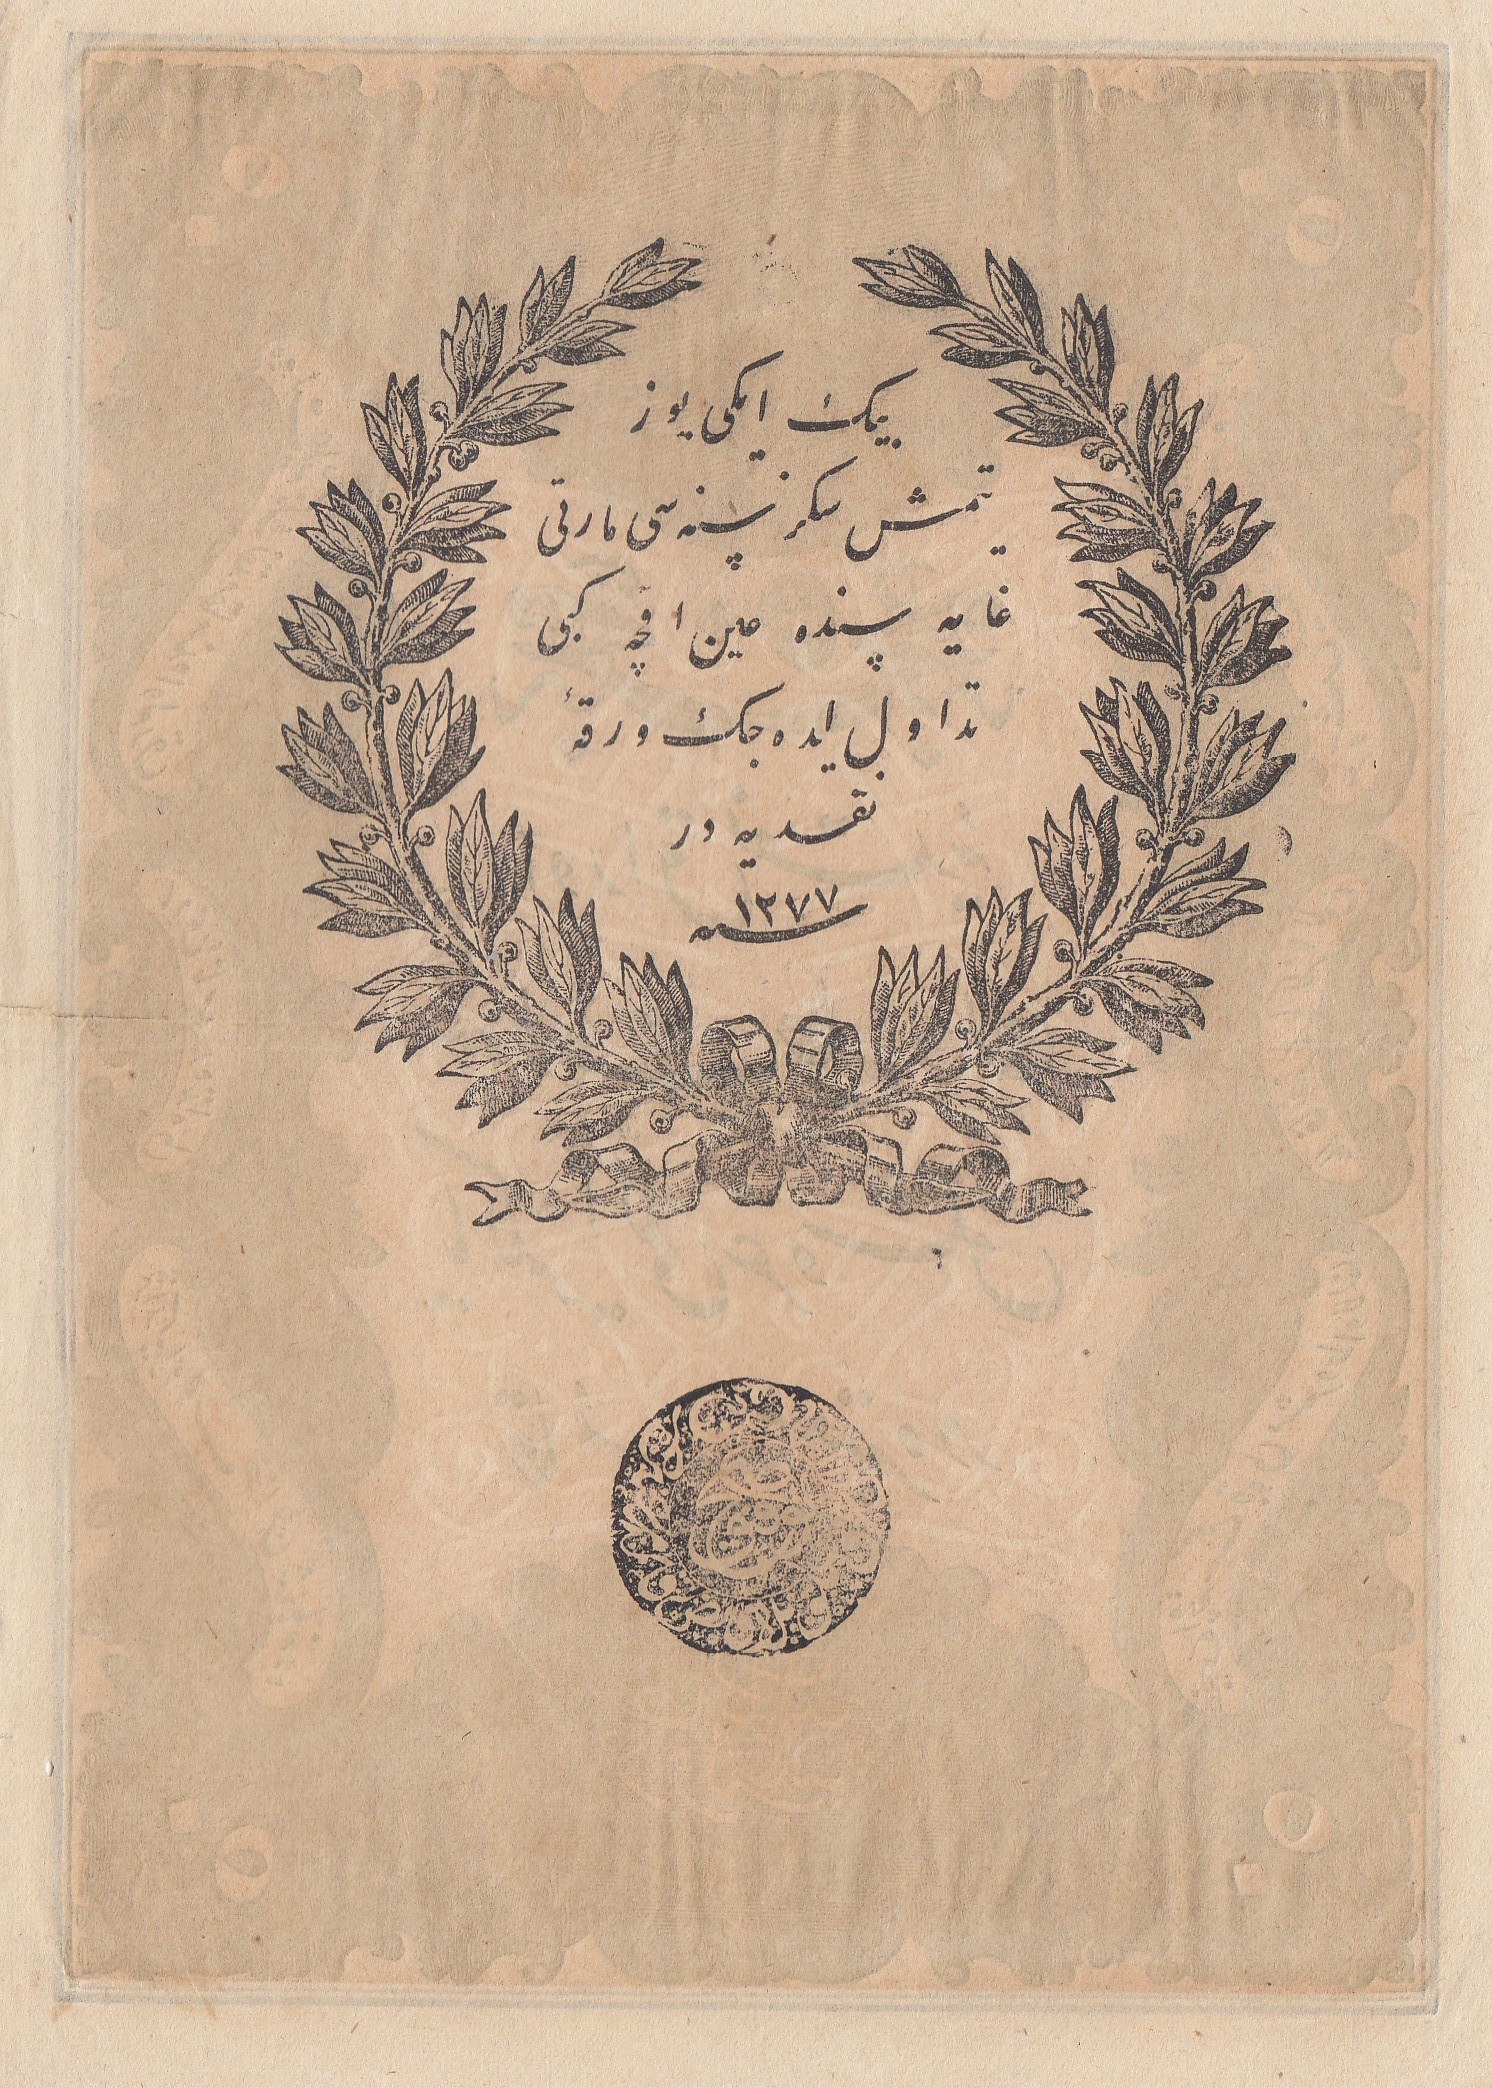 بيڭ ايكی يوز
يتمش سكز سنه سی مارتی
غايه سنده عين اقچه كبی
تداول ايده جك ورقهٔ
نقديه در
سنه ١٢٧٧